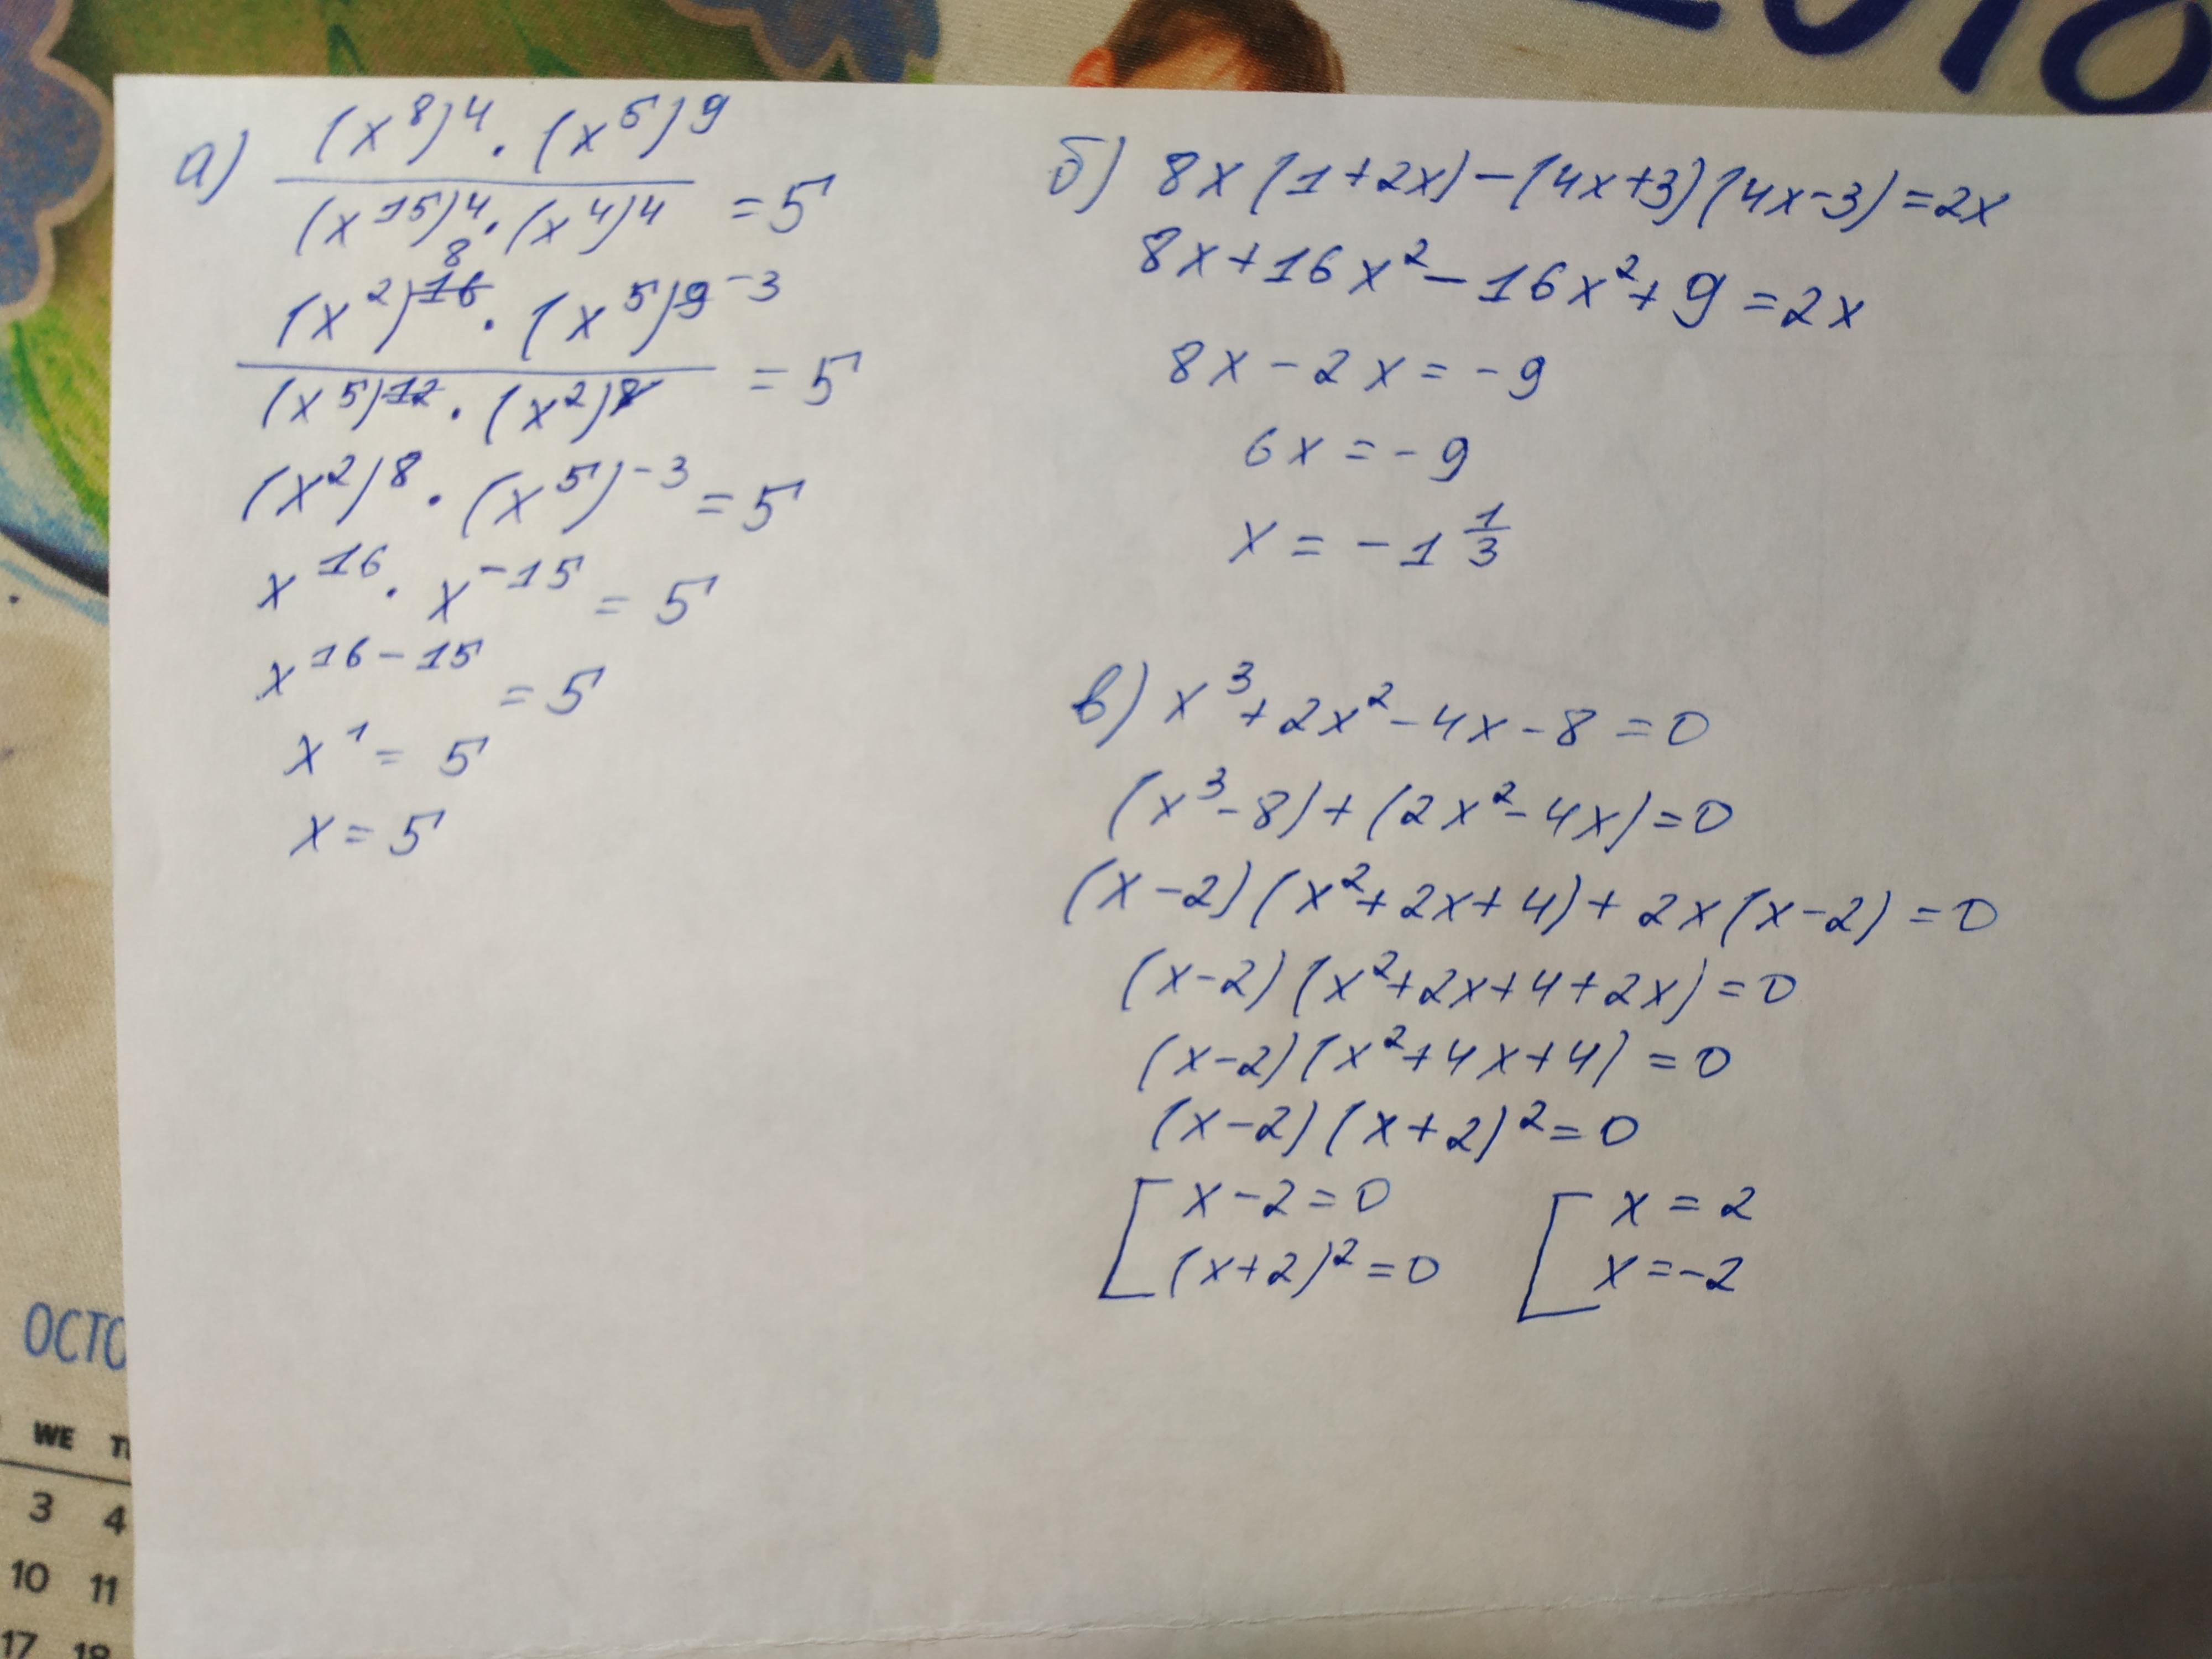 2018
а) (x^8)^4 · (x^5)^9 / (x^15)^4 · (x^4)^4 = 5
(x^2)^16 8 · (x^5)^9 -3 / (x^5)^12 · (x^2)^8 = 5
(x^2)^8 · (x^5)^-3 = 5
x^16 · x^-15 = 5
x^16-15 = 5
x^1 = 5
x = 5
б) 8x(1+2x)-(4x+3)(4x-3)=2x
8x+16x²-16x²+9=2x
8x-2x=-9
6x=-9
x=-1 1/3
в) x³+2x²-4x-8=0
(x³-8)+(2x²-4x)=0
(x-2)(x²+2x+4)+2x(x-2)=0
(x-2)(x²+2x+4+2x)=0
(x-2)(x²+4x+4)=0
(x-2)(x+2)²=0
[ x-2=0 [ x=2
(x+2)²=0 x=-2
OCTO
WE
3 4
10 11
17 18